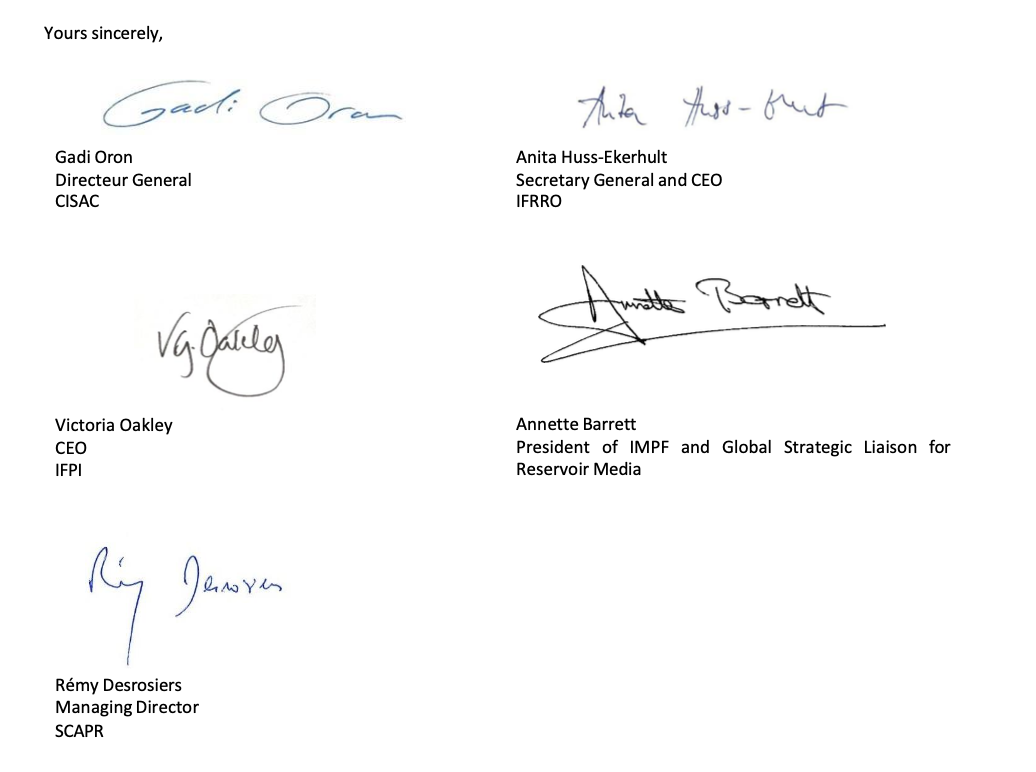 Yours sincerely,
Gadi Oron
Anita Huss-Ekerhult
Gadi Oron
Directeur General
CISAC
Anita Huss-Ekerhult
Secretary General and CEO
IFRRO
VG. Oakley
Annette Barrett
Victoria Oakley
CEO
IFPI
Annette Barrett
President of IMPF and Global Strategic Liaison for
Reservoir Media
Rémy Desrosiers
Rémy Desrosiers
Managing Director
SCAPR